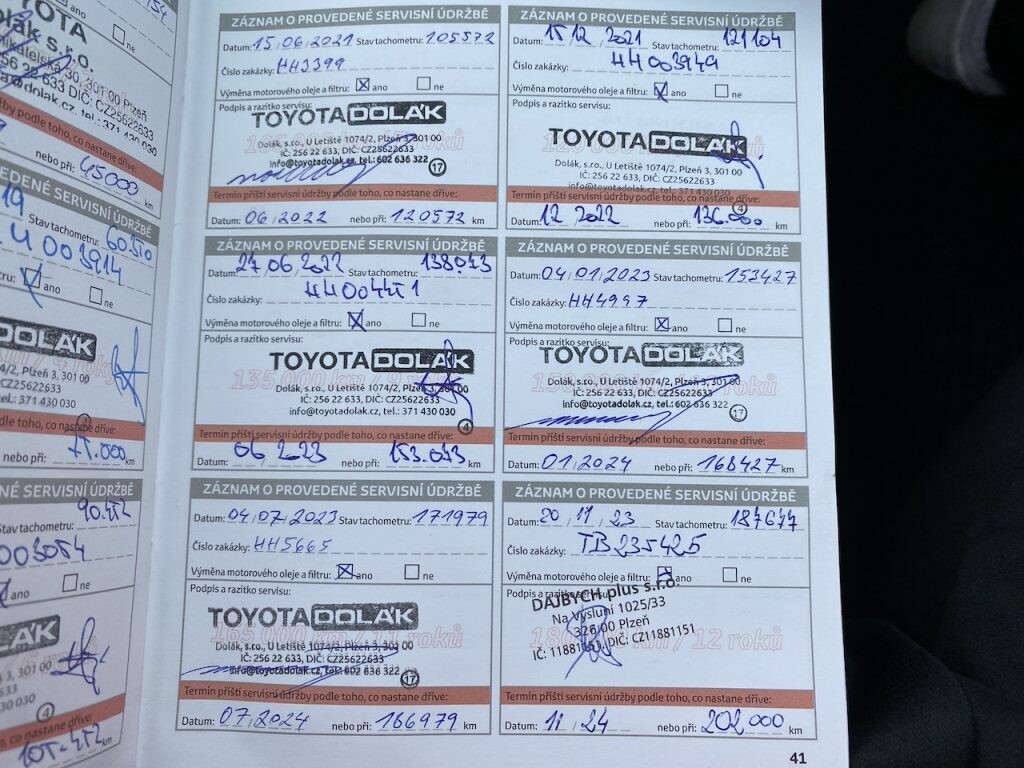 OYOTA
olák s.r.o.
ano
ne
56 22 633 DIČ: CZ25622633
dolak.cz, tel.: 371 430 030
by podle toho, co nastane dříve:
nebo při: 45000 km
EDENÉ SERVISNÍ ÚDRŽBĚ
19 Stav tachometru: 60.510
H003914
ano
ne
OLÁK
4/2, Plzeň 3, 301 00
CZ25622633
tel.: 371 430 030
toho, co nastane dříve:
75.000 km
NÉ SERVISNÍ ÚDRŽBĚ
Stav tachometru: 90.452
003054
ne
LÁK
co nastane dříve:
105.452 km
ZÁZNAM O PROVEDENÉ SERVISNÍ ÚDRŽBĚ
Datum: 15,06,2021 Stav tachometru: 105572
Číslo zakázky: HH3399
Výměna motorového oleje a filtru: ano ne
Podpis a razítko servisu:
TOYOTA DOLÁK
Dolák, s.r.o., U Letiště 1074/2, Plzeň 3, 301 00
IČ: 256 22 633, DIČ: CZ25622633
info@toyotadolak.cz, tel.: 602 636 322
17
Termín příští servisní údržby podle toho, co nastane dříve:
Datum: 06,2022 nebo při: 120572 km
ZÁZNAM O PROVEDENÉ SERVISNÍ ÚDRŽBĚ
Datum: 15,12,2021 Stav tachometru: 121104
Číslo zakázky: HH003949
Výměna motorového oleje a filtru: ano ne
Podpis a razítko servisu:
TOYOTA DOLÁK
Dolák, s.r.o., U Letiště 1074/2, Plzeň 3, 301 00
IČ: 256 22 633, DIČ: CZ25622633
info@toyotadolak.cz, tel.: 371 430 030
4
Termín příští servisní údržby podle toho, co nastane dříve:
Datum: 12,2022 nebo při: 136.000 km
ZÁZNAM O PROVEDENÉ SERVISNÍ ÚDRŽBĚ
Datum: 27,06,2022 Stav tachometru: 138043
Číslo zakázky: HH004451
Výměna motorového oleje a filtru: ano ne
Podpis a razítko servisu:
TOYOTA DOLÁK
135 000 km / 9 roků
Dolák, s.r.o., U Letiště 1074/2, Plzeň 3, 301 00
IČ: 256 22 633, DIČ: CZ25622633
info@toyotadolak.cz, tel.: 371 430 030
4
Termín příští servisní údržby podle toho, co nastane dříve:
Datum: 06,2023 nebo při: 153.043 km
ZÁZNAM O PROVEDENÉ SERVISNÍ ÚDRŽBĚ
Datum: 04,01,2023 Stav tachometru: 153427
Číslo zakázky: HH4997
Výměna motorového oleje a filtru: ano ne
Podpis a razítko servisu:
TOYOTA DOLÁK
Dolák, s.r.o., U Letiště 1074/2, Plzeň 3, 301 00
IČ: 256 22 633, DIČ: CZ25622633
info@toyotadolak.cz, tel.: 602 636 322
17
Termín příští servisní údržby podle toho, co nastane dříve:
Datum: 01,2024 nebo při: 168427 km
ZÁZNAM O PROVEDENÉ SERVISNÍ ÚDRŽBĚ
Datum: 04,07,2023 Stav tachometru: 171979
Číslo zakázky: HH5665
Výměna motorového oleje a filtru: ano ne
Podpis a razítko servisu:
TOYOTA DOLÁK
165 000 km / 11 roků
Dolák, s.r.o., U Letiště 1074/2, Plzeň 3, 301 00
IČ: 256 22 633, DIČ: CZ25622633
info@toyotadolak.cz, tel.: 602 636 322
17
Termín příští servisní údržby podle toho, co nastane dříve:
Datum: 07,2024 nebo při: 186979 km
ZÁZNAM O PROVEDENÉ SERVISNÍ ÚDRŽBĚ
Datum: 20,11,23 Stav tachometru: 187677
Číslo zakázky: TB235425
Výměna motorového oleje a filtru: ano ne
Podpis a razítko servisu:
DAJBYCH plus s.r.o.
Na Výsluní 1025/33
326 00 Plzeň
IČ: 11881151, DIČ: CZ11881151
km / 12 roků
Termín příští servisní údržby podle toho, co nastane dříve:
Datum: 11,24 nebo při: 202000 km
41